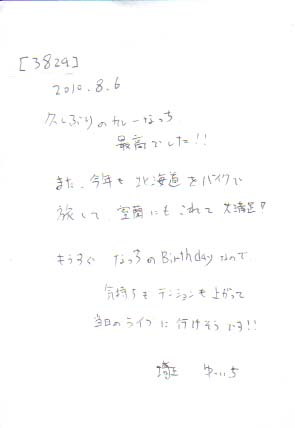 [3829]
2010.8.6
久しぶりのカレーなっち
最高でした!!
また、今年も北海道をバイクで
旅して、室蘭にもこれて大満足?
もうすぐ なっちのBirthdayなので
気持ちもテンションも上がって
当日のライブに行けそうです!!
埼玉 ゆういち